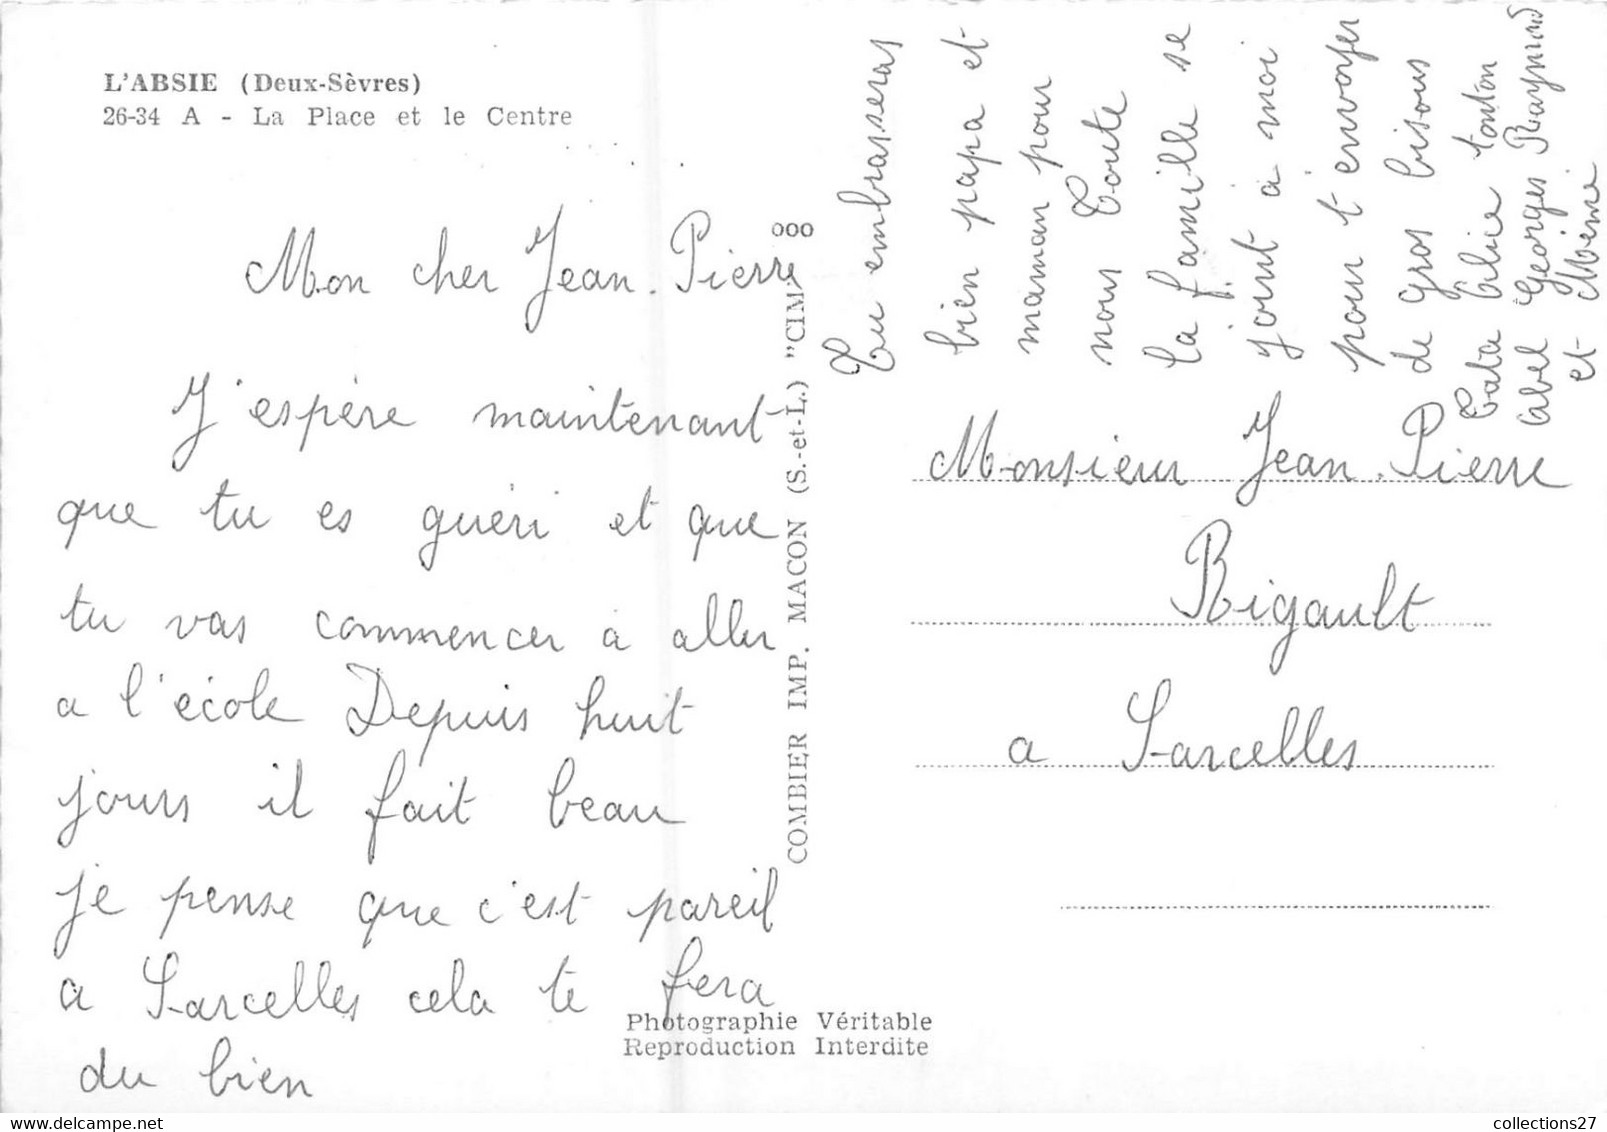 L'ABSIE (Deux-Sèvres)
26-34 A - La Place et le Centre
Mon cher Jean. Pierre
J'espère maintenant
que tu es guéri et que
tu vas commencer a aller
a l'école Depuis huit
jours il fait beau
je pense que c'est pareil
a Sarcelles cela te fera
du bien
COMBIER IMP. MACON (S.-et-L.) "CIM"
ooo
Photographie Véritable
Reproduction Interdite
Tu embrasseras
bien papa et
maman pour
nous Toute
la famille se
joint a moi
pour t'envoyer
de gros bisous
Tata tonton
Abel Georges Raymond
et Mémé
Monsieur Jean. Pierre
Rigault
a Sarcelles
collections27